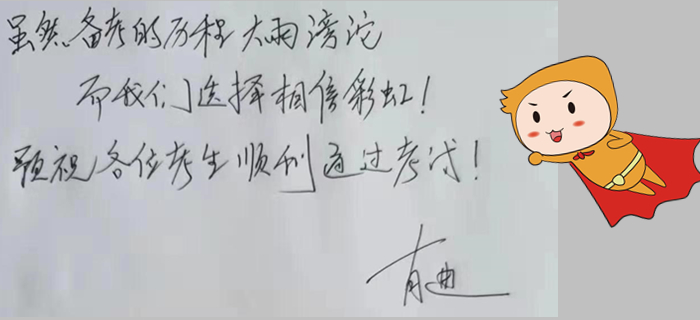 虽然备考的历程大雨滂沱
而我们选择相信彩虹！
预祝各位考生顺利通过考试！
有典